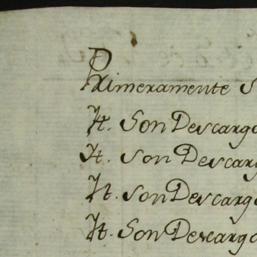 Primeramente S
It. Son Descargo
It. Son Descarg
It. Son Descargo
It. Son Descargo